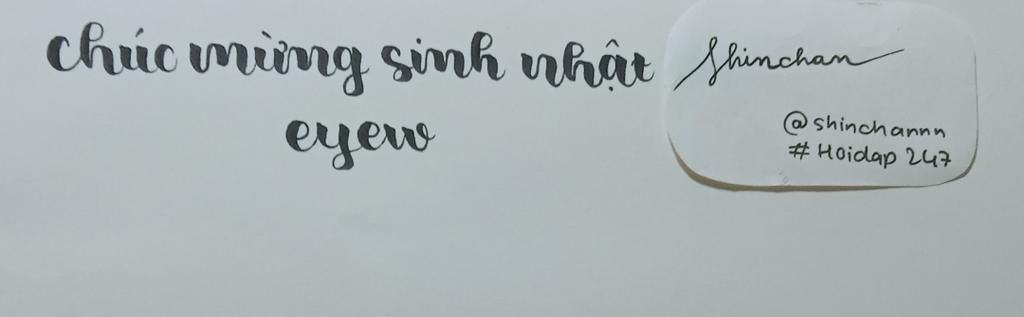 chúc mừng sinh nhật
eyew
Shinchan
@shinchannn
# Hoidap 247